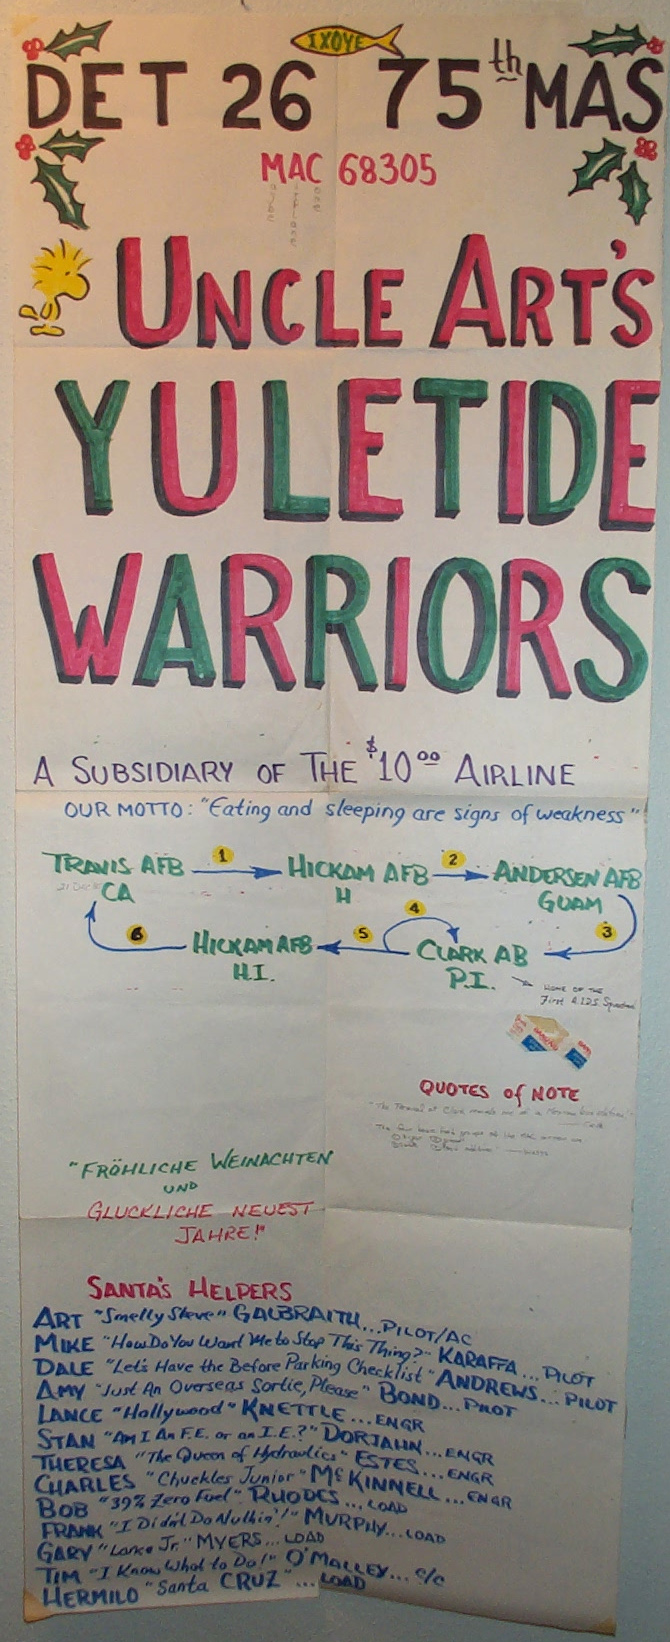 IXOYE
DET 26 75th MAS
MAC 68305
Uncle Art's
YULETIDE
WARRIORS
A SUBSIDIARY OF THE $10⁰⁰ AIRLINE
OUR MOTTO: "Eating and sleeping are signs of weakness"
TRAVIS AFB 1 HICKAM AFB 2 ANDERSEN AFB
CA H GUAM
4
6 HICKAM AFB 5 CLARK AB 3
H.I. P.I.
HOME OF THE
First A.I.D.S. Squadron
QUOTES of NOTE
"The Terminal at Clark reminds me of a Mexican bus station."
"FRÖHLICHE WEINACHTEN
UND
GLUCKLICHE NEUEST
JAHRE!"
SANTA'S HELPERS
ART "Smelly Steve" GALBRAITH...PILOT/AC
MIKE "How Do You Want Me to Stop This Thing?" KARAFFA...PILOT
DALE "Let's Have the Before Parking Checklist" ANDREWS...PILOT
AMY "Just An Overseas Sortie, Please" BOND...PILOT
LANCE "Hollywood" KNETTLE...ENGR
STAN "AM I AN F.E. or an I.E.?" DORJAHN...ENGR
THERESA "The Queen of Hydraulics" ESTES...ENGR
CHARLES "Chuckles Junior" McKINNELL...ENGR
BOB "39% Zero Fuel" RHODES...LOAD
FRANK "I Didn't Do Nuthin'!" MURPHY...LOAD
GARY "Lance Jr." MYERS...LOAD
TIM "I Know What to Do!" O'MALLEY...C/C
HERMILO "Santa CRUZ"...LOAD